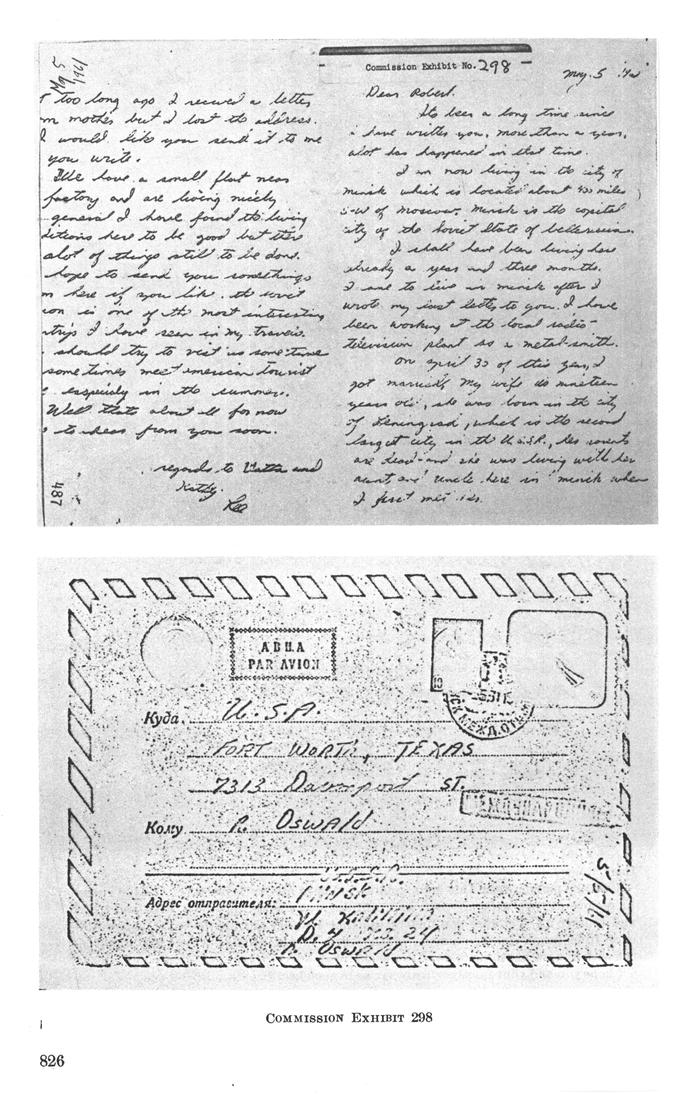 Commission Exhibit No. 298
May 5
Dear Robert.
Its been a long time since
i have written you, more than a year,
alot has happened in that time.
I am now living in the city of
minsk which is located about 400 miles
S-W of moscow. Minsk is the capital
city of the Soviet State of
I shall have been living here
already a year and three months.
I came to live in minsk after I
wrote my last letter to you. I have
been working at the local radio-
television plant as a metal-smith.
On april 30 of this year, I
got married. My wife is nineteen
years old, she was born in the city
of Leningrad, which is the second
largest city in the U.S.S.R., her parents
are dead and she was living with her
aunt and uncle here in minsk when
I first met her.
May 5
1961
t too long ago I recived a letter
om mother but I lost the address.
I would like you send it to me
you write.
We have a small flat near
factory and are living nicely
general I have found the living
ditions here to be good but there
alot of things still to be done.
hope to send you somethings
m here if you like. the sovit
ion is one of the most interesting
ntrys I have seen in my travels.
should try to visit us some time
some times meet american tourist
e especialy in the summer.
Well thats about all for now
e to hear from you soon.
regards to Vatta and
Kathy.
Lee
487
АВИА
PAR AVION
МИНСК МЕЖД. ОТД.
Куда. U.S.A.
FORT WORTH, TEXAS
7313 Davenport ST.
МЕЖДУНАРОДНОЕ
Кому R. Oswald
Адрес отправителя:
Minsk
D. 4 24
Oswald
5/5/61
COMMISSION EXHIBIT 298
826